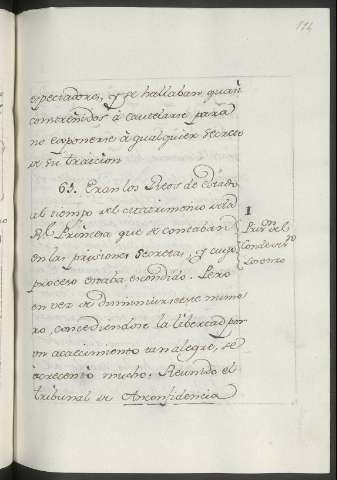 114
espectadores, y se hallaban quasi
constreñidos á cautelarse para
no exponerse á qualquier
de su traicion
63. Eran los Reos de Estado
al tiempo del del
Rl Princesa que se contaban
en las prisiones secretas, y cuyo
proceso estaba escondido. Pero
en vez de diminuirse este nume
ro, concediendose la libertad por
un acaecimiento tan alegre, se
acrecentó mucho. Reunido el
tribunal de Inconfidencia
I
Pris.on del
Conde de Sn
Lorenzo